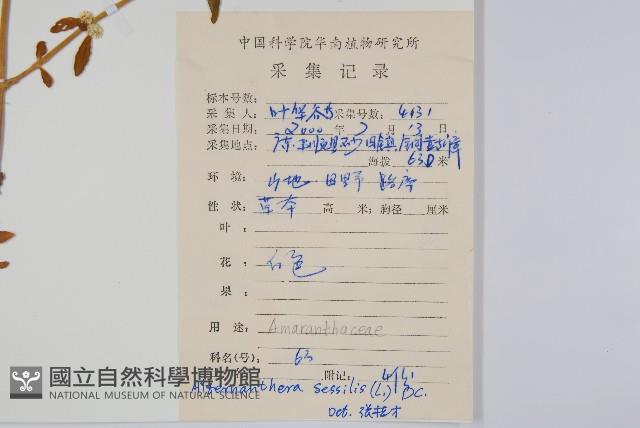 中国科学院华南植物研究所
采 集 记 录
标本号数：
采 集 人：叶华谷 采集号数：4131
采集日期：2000 年 7 月 13 日
采集地点：
海拨 630 米
环 境：山地 田野 路旁
性 状：草本 高 米；胸径 厘米
叶：
花：白色
果：
用 途：Amaranthaceae
科名(号)：63 附记：
Alternanthera sessilis (L.) DC.
Det. 张桂才
國立自然科學博物館
NATIONAL MUSEUM OF NATURAL SCIENCE